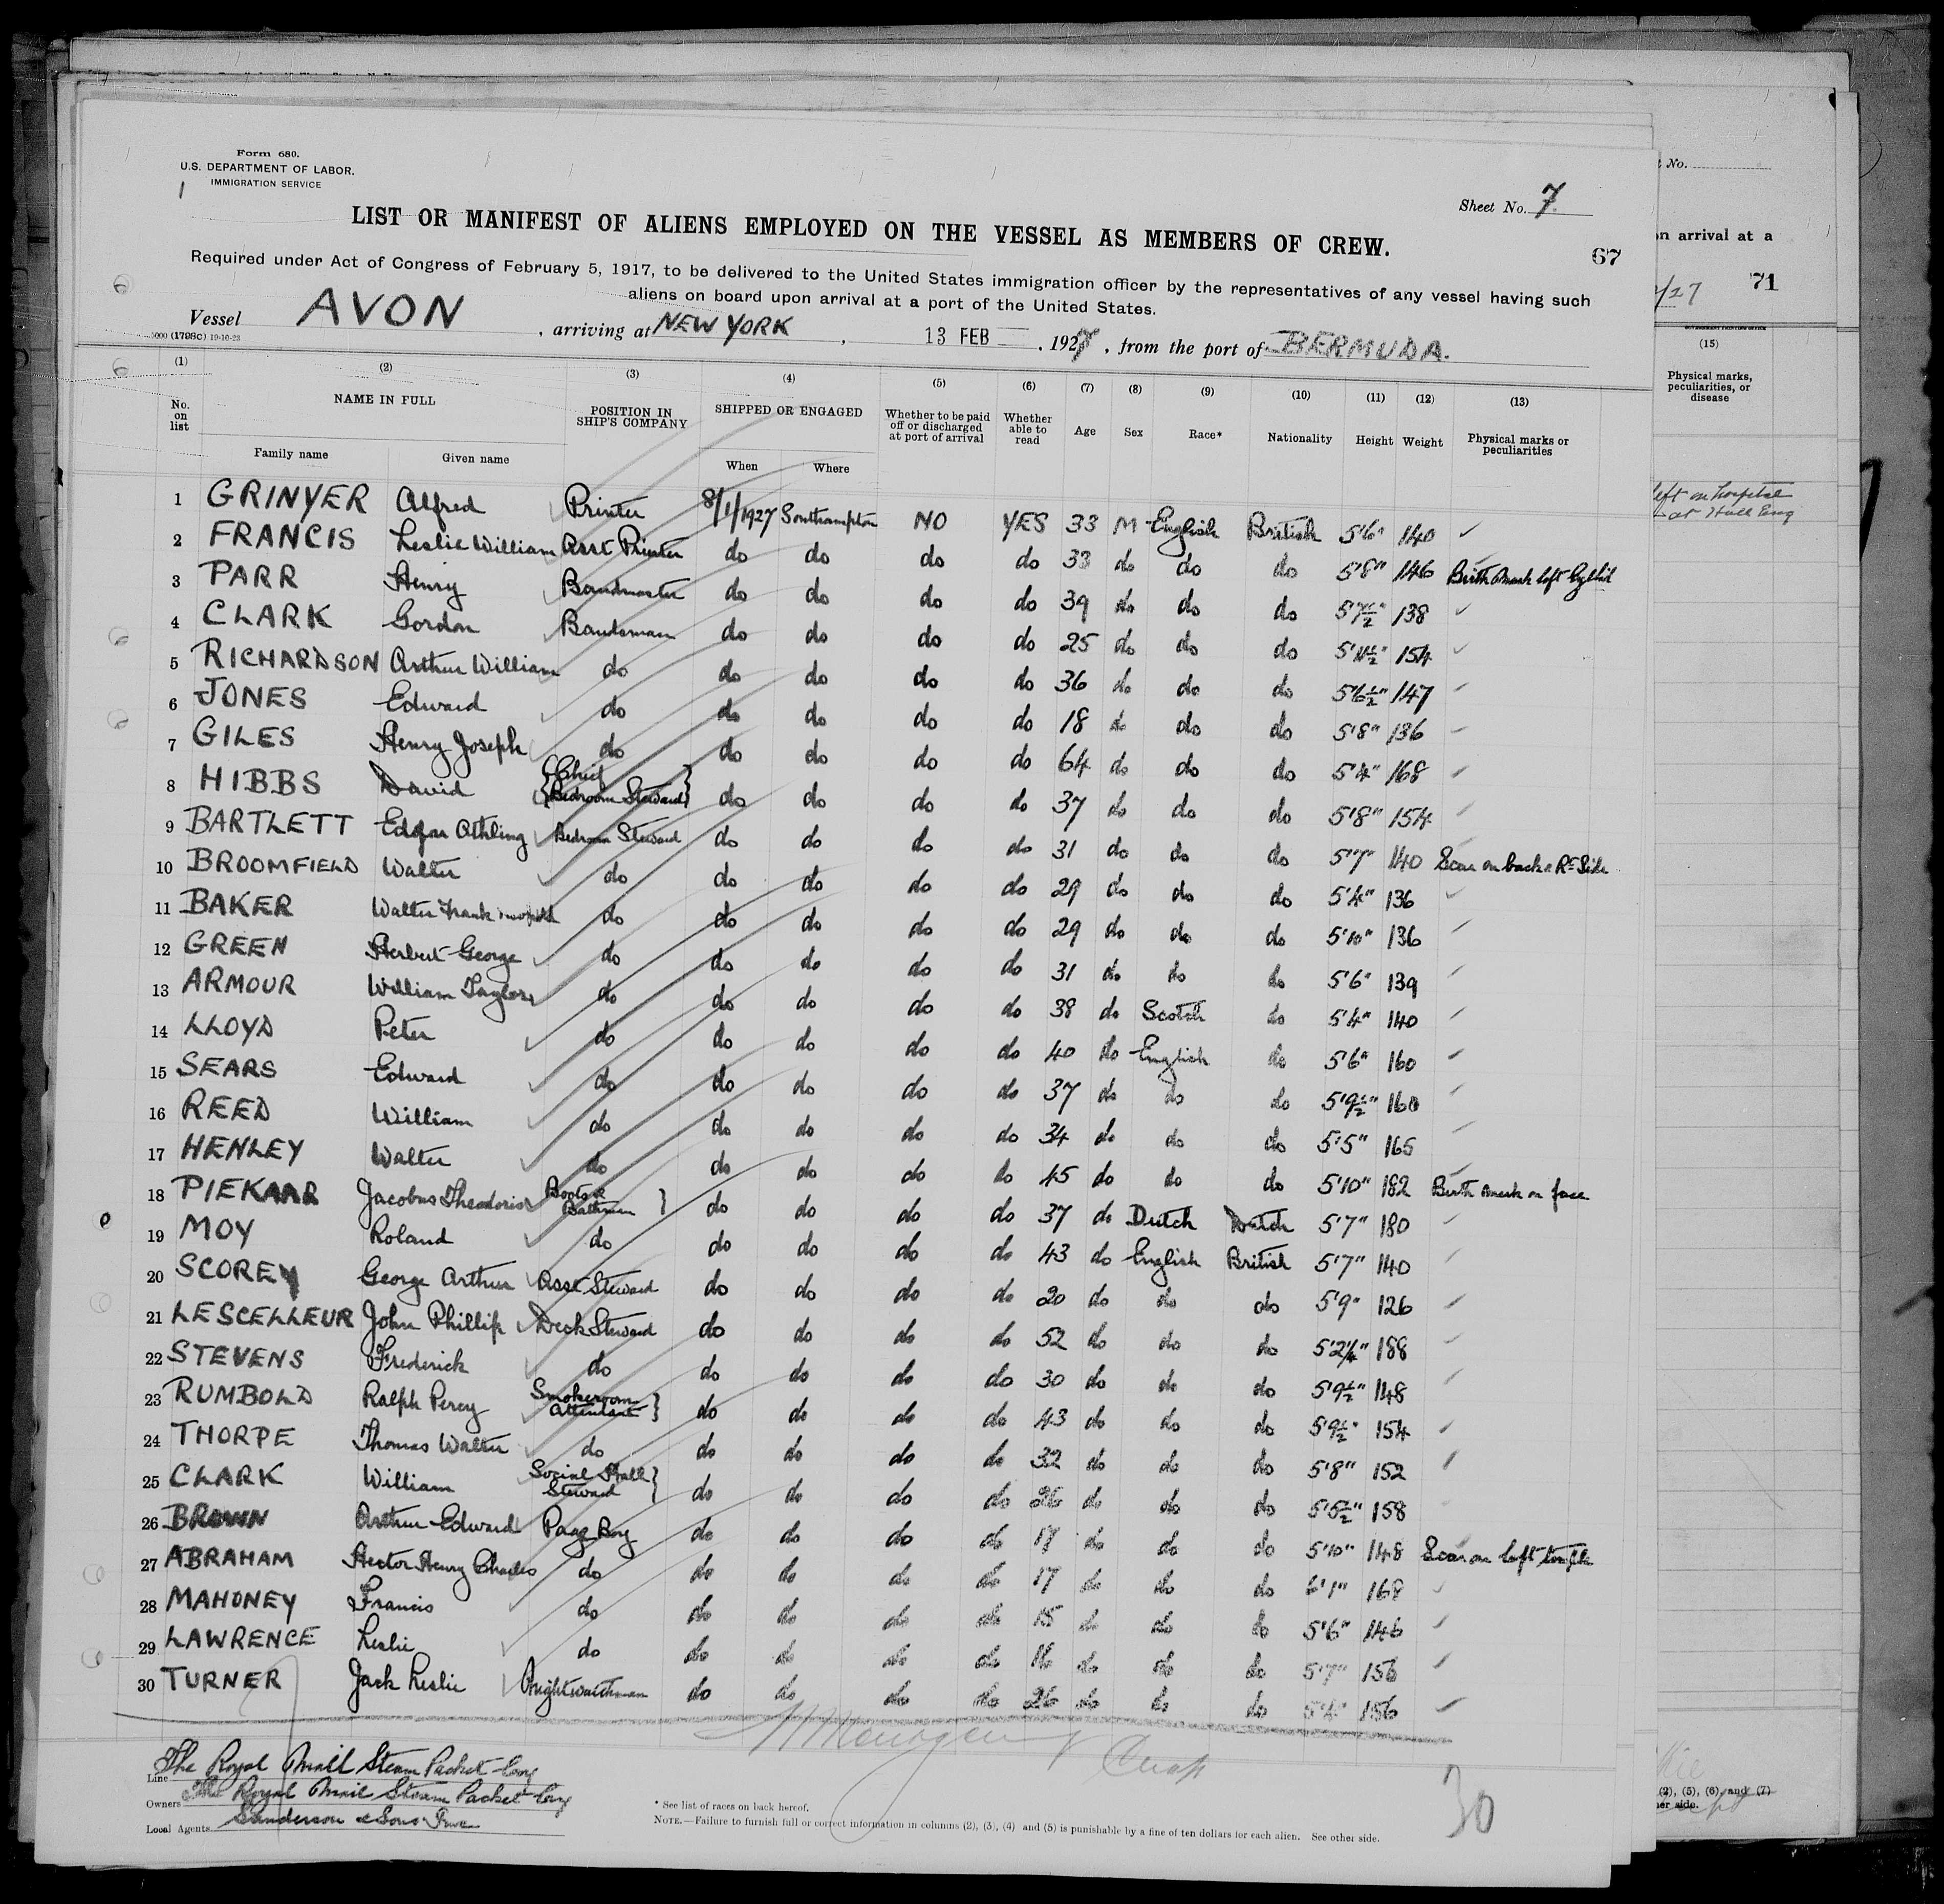 Form 680.
U.S. DEPARTMENT OF LABOR.
IMMIGRATION SERVICE
1
Sheet No. 7
LIST OR MANIFEST OF ALIENS EMPLOYED ON THE VESSEL AS MEMBERS OF CREW.
67
Required under Act of Congress of February 5, 1917, to be delivered to the United States immigration officer by the representatives of any vessel having such
aliens on board upon arrival at a port of the United States.
Vessel AVON, arriving at NEW YORK, 13 FEB, 1927, from the port of BERMUDA.
5000 (1798C) 19-10-23
(1) (2) (3) (4) (5) (6) (7) (8) (9) (10) (11) (12) (13)
No. on list NAME IN FULL POSITION IN SHIP'S COMPANY SHIPPED OR ENGAGED Whether to be paid off or discharged at port of arrival Whether able to read Age Sex Race* Nationality Height Weight Physical marks or peculiarities
Family name Given name When Where
1 GRINYER Alfred Printer 8/1/1927 Southampton NO YES 33 M English British 5'6" 140
2 FRANCIS Leslie William Asst Printer do do do do 33 do do do 5'8" 146 Birth mark left Eyelid
3 PARR Henry Bandmaster do do do do 39 do do do 5'7½" 138
4 CLARK Gordon Bandsman do do do do 25 do do do 5'11½" 154
5 RICHARDSON Arthur William do do do do do 36 do do do 5'6½" 147
6 JONES Edward do do do do do 18 do do do 5'8" 136
7 GILES Henry Joseph do do do do do 64 do do do 5'4" 168
8 HIBBS David {Chief Bedroom Steward} do do do do 37 do do do 5'8" 154
9 BARTLETT Edgar Athling Bedroom Steward do do do do 31 do do do 5'7" 140 Scar on back & Rt Side
10 BROOMFIELD Walter do do do do do 29 do do do 5'4" 136
11 BAKER Walter Frank do do do do do 29 do do do 5'10" 136
12 GREEN Herbert George do do do do do 31 do do do 5'6" 139
13 ARMOUR William Taylor do do do do do 38 do Scotch do 5'4" 140
14 LLOYD Peter do do do do do 40 do English do 5'6" 160
15 SEARS Edward do do do do do 37 do do do 5'9½" 160
16 REED William do do do do do 34 do do do 5'5" 165
17 HENLEY Walter do do do do do 45 do do do 5'10" 182 Birth mark on face
18 PIEKAAR Jacobus Theodorus Boots & Bathman } do do do do 37 do Dutch Dutch 5'7" 180
19 MOY Roland do do do do do 43 do English British 5'7" 140
20 SCOREY George Arthur Asst Steward do do do do 20 do do do 5'9" 126
21 LESCELLEUR John Phillip Deck Steward do do do do 52 do do do 5'2¼" 188
22 STEVENS Frederick do do do do do 30 do do do 5'9½" 148
23 RUMBOLD Ralph Percy Smokeroom Attendant } do do do do 43 do do do 5'9½" 154
24 THORPE Thomas Walter do do do do do 32 do do do 5'8" 152
25 CLARK William Social Hall Steward } do do do do 26 do do do 5'5½" 158
26 BROWN Arthur Edward Page Boy do do do do 17 do do do 5'10" 148 Scar on left temple
27 ABRAHAM Hector Henry Charles do do do do do 17 do do do 6'1" 168
28 MAHONEY Francis do do do do do 15 do do do 5'6" 146
29 LAWRENCE Leslie do do do do do 16 do do do 5'7" 156
30 TURNER Jack Leslie Nightwatchman do do do do 26 do do do 5'4" 156
Line The Royal Mail Steam Packet Coy
Owners The Royal Mail Steam Packet Coy
Local Agents Sanderson & Sons Inc
* See list of races on back hereof.
NOTE.—Failure to furnish full or correct information in columns (2), (3), (4) and (5) is punishable by a fine of ten dollars for each alien. See other side.
30
No.
on arrival at a
/27 71
(15)
Physical marks, peculiarities, or disease
left in hospital
at Hull Eng
(2), (5), (6), and (7)
her side.